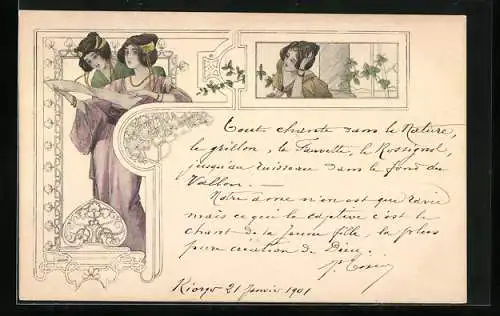 Tout chante dans la Nature,
le grillon, la Fauvette, le Rossignol,
jusqu'au ruisseau dans le fond du
Vallon. —
Notre âme n'en est que ravie
mais ce qui la captive c'est le
chant de la jeune fille, la plus
pure création de Dieu.
21 Janvier 1901